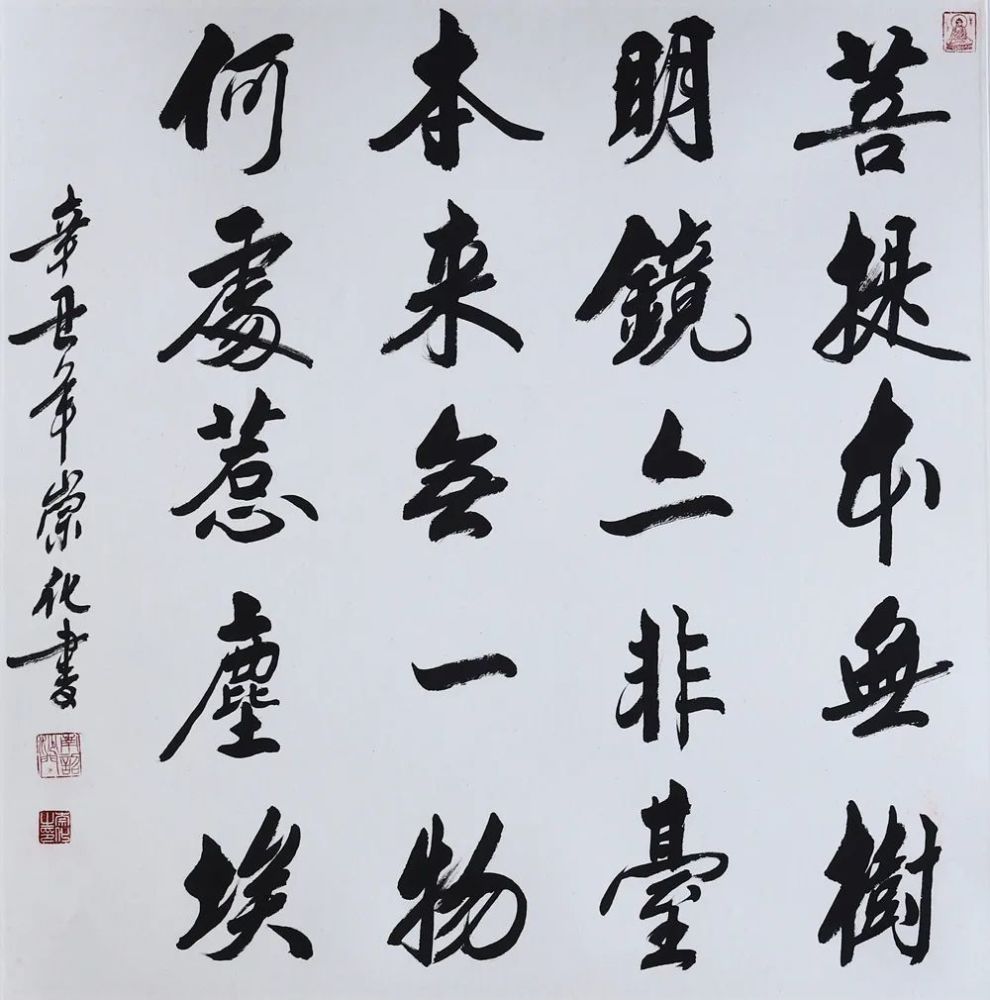 菩提本無樹
明鏡亦非臺
本来无一物
何處惹塵埃
辛丑年崇化書